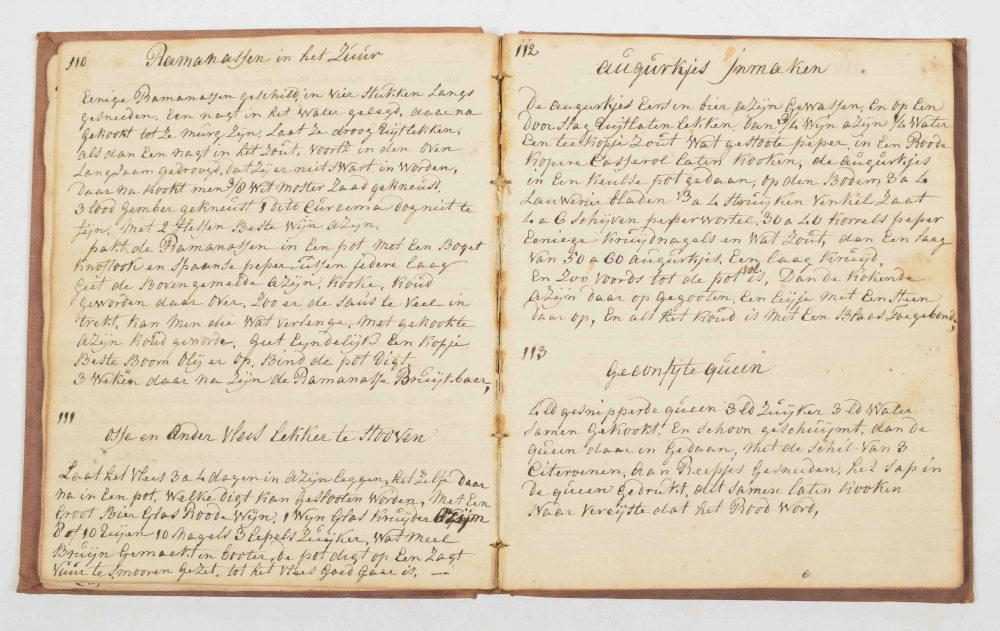 110
Ramanassen in het Zuur
Eenige Ramanassen geschild, in vier Stukken Langs
gesneiden. Een nagt in het Water gelegd, daar na
gekookt tot Ze murg Zijn. Laat Ze droog Uijtlekken,
als dan Een nagt in het Zout, voorts in den oven
Langzaam gedroogd, dat Zij er niet Swart in worden,
daar na kookt men 3/8 Wit Moster Zaad gekneust,
3 lood gember gekneust 1 dito Curcuma dog niet te
fijn. Met 2 flessen Beste Wijn aZijn,
pakt de Ramanassen in Een pot Met Een
knoflook en Spaanse peper Tussen jedere laag
giet de Bovengemelde aZijn, kooke, koud
geworden daar over. Zoo er de Saus te veel in
trekt, kan men die Wat verlenge. Met gekookte
aZijn koud geworde, giet Eijndelijk Een kopje
Beste Boom olij er op. Bind de pot digt
3 Weken daar na Zijn de Ramanasse Bruijkbaer,
111
Osse en Ander vlees Lekker te Stooven
Laat het vlees 3 a 4 dagen in aZijn leggen, het Zelfde daar
na in Een pot, Welke digt kan geslooten Worden, Met Een
Groot Bier Glas Roode Wijn, 1 Wijn Glas Kruijde aZijn
8 of 10 Uijen 10 Nagels 3 lepels Zuijker, Wat meel
Bruijn Gemaekt in booter, de pot digt op Een Zagt
Vuur te Smooren gezet, tot het vlees Goed Gaar is, —
112
augurkjes Inmaken
De augurkjes Eerst in bier aZijn Gewassen, En op Een
Door Slag Uijtlaten lekken, dan 3/4 Wijn aZijn 1/4 Water
Een tee kopje Zout, Wat gestoote peper, in Een Roode
kopere Casserol laten kooken, de augurkjes
in Een keulse pot gedaan, op den Bodem 3 a 4
Lauwerier bladen 3 a 4 Struijken Venkel Zaat
4 a 6 Schijven peperwortel, 30 a 40 korrels peper
Eeniege Kruijdnagels en Wat Zout, dan Een laag
van 50 a 60 augurkjes, Een laag Kruijd,
En Zoo voords tot de pot vol is, Dan de kokende
aZijn daar op gegooten, Een Met Een Steen
daar op, En als het koud is Met Een Blaas toegebonde,
113
Geconfijte queen
4 ld gesnipperde queen 3 ld Zuijker 3 ld Water
Samen gekookt, En Schoon geschuijmt, dan de
queen daar in gedaan, Met de Schil van 3
Citeroenen, aan Reepjes Gesneiden, het Sap in
De queen gedrukt, dit Samen laten kooken
Naar vereijste dat het Rood Word,